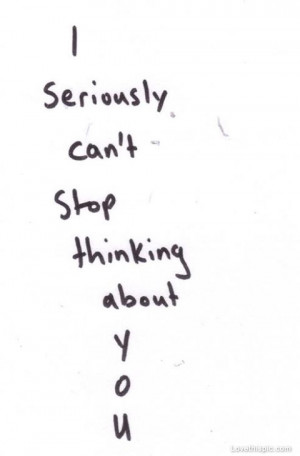 I
Seriously
can't
Stop
thinking
about
y
o
u
Lovethispic.com